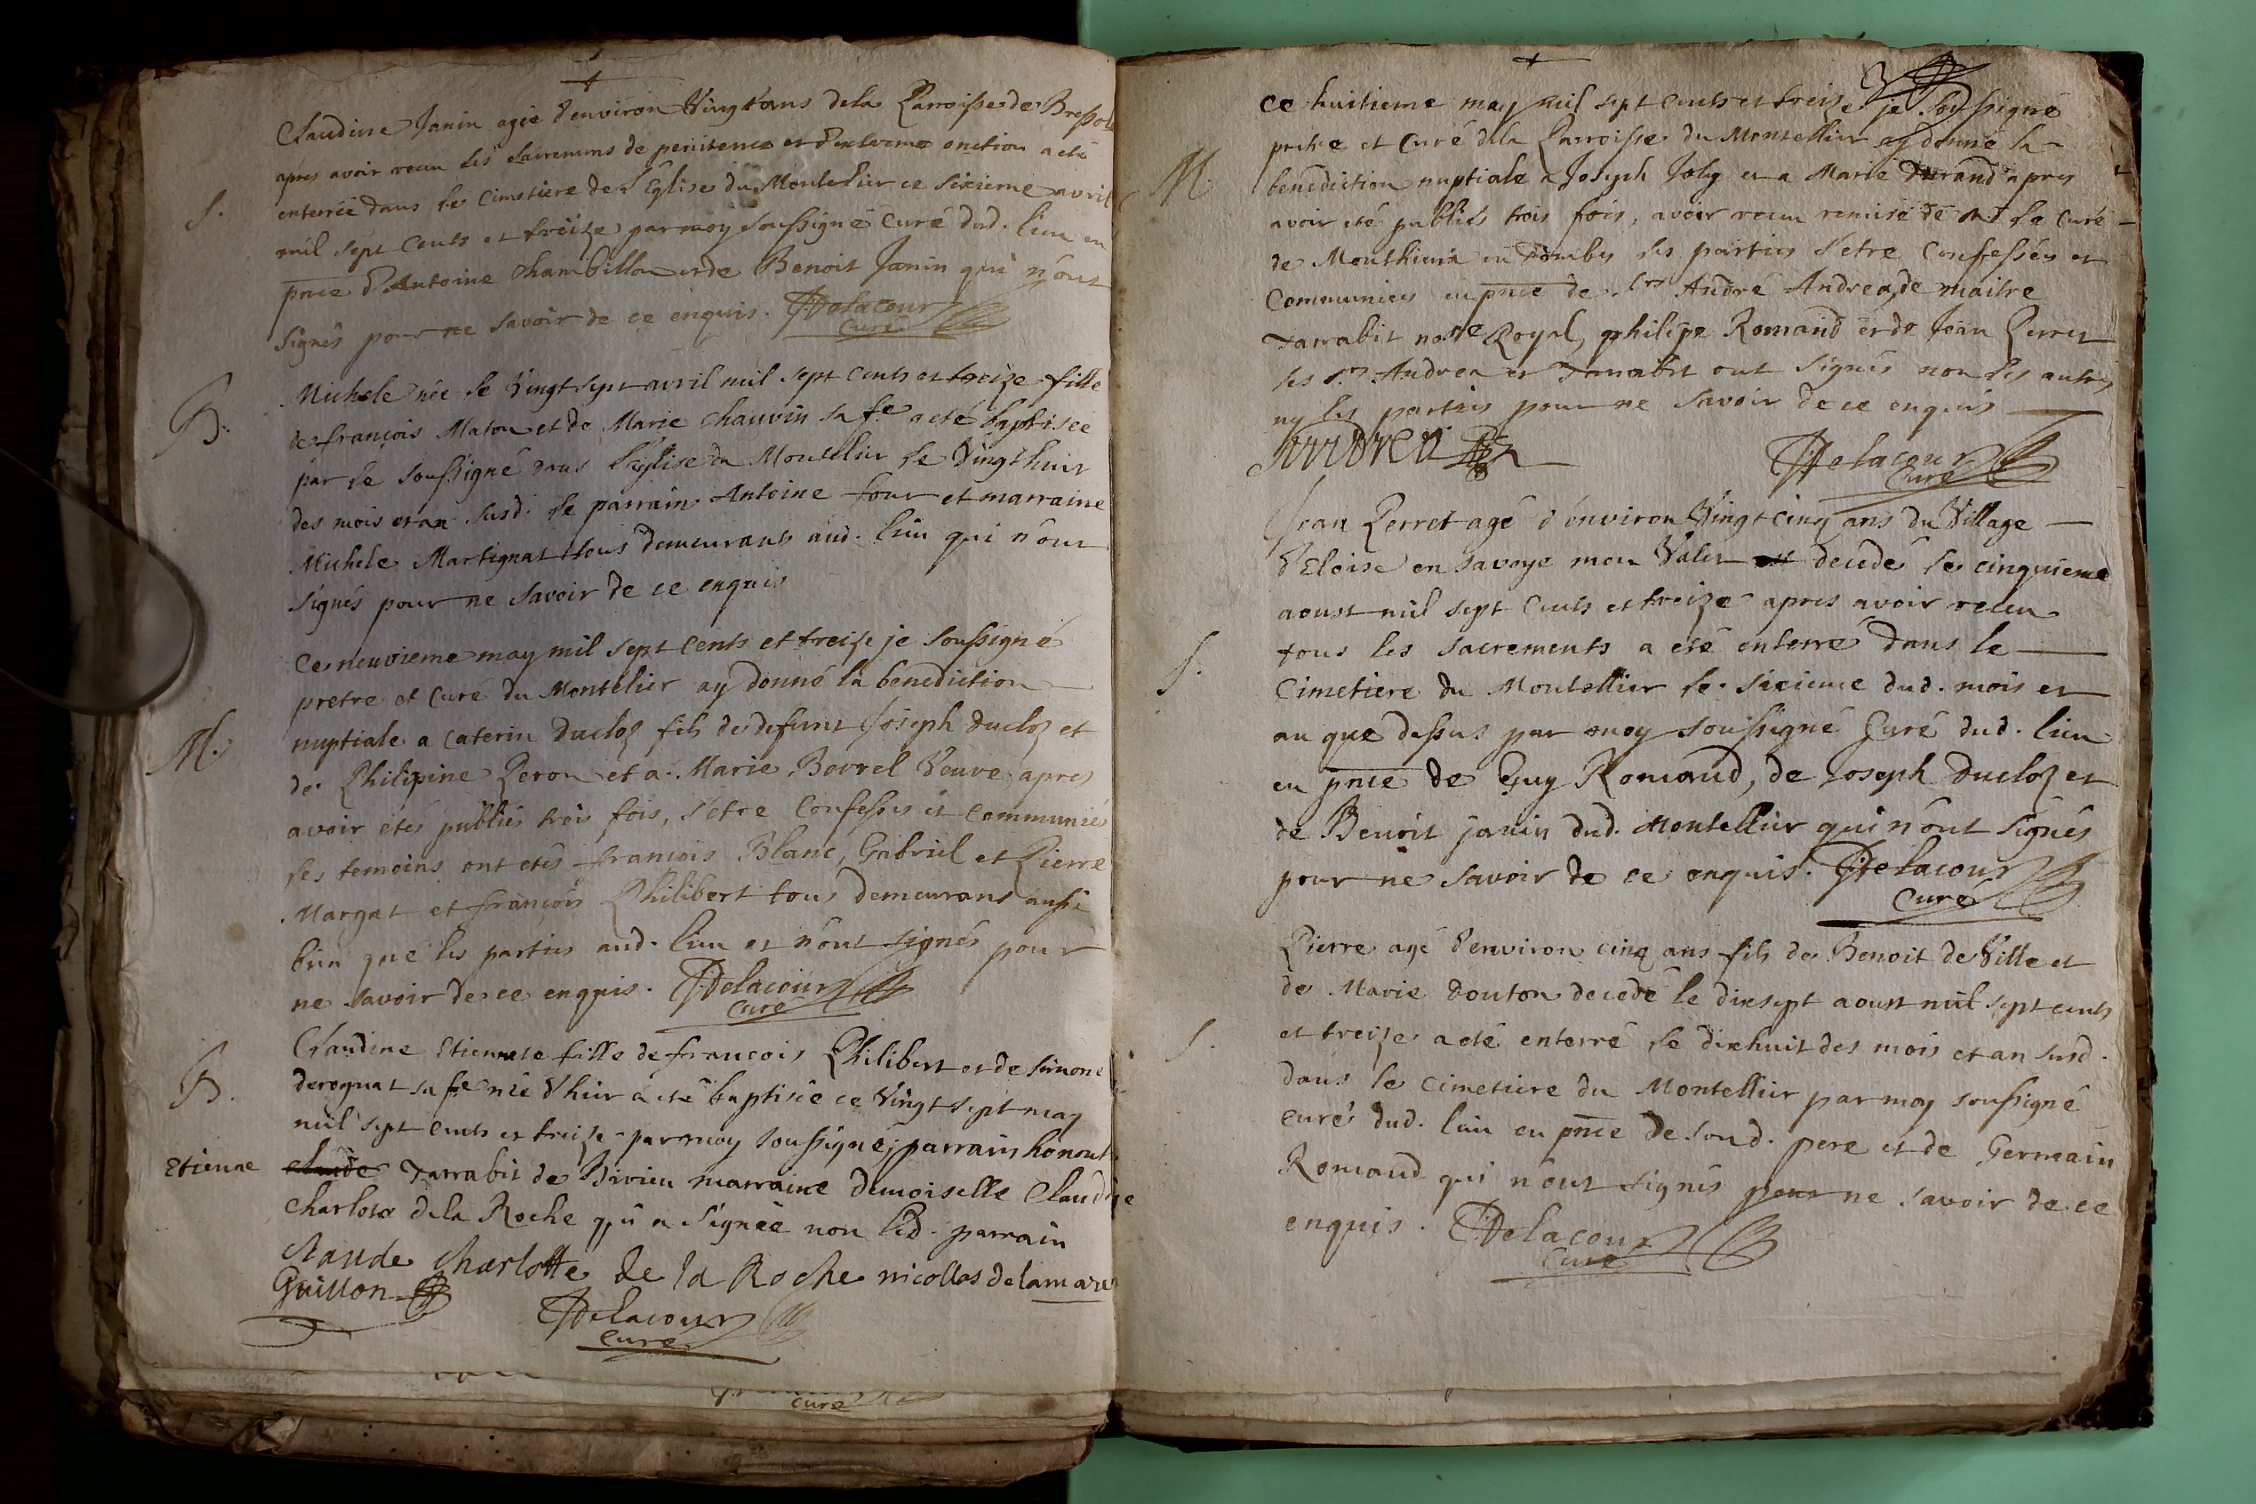 Claudine Janin agée d'environ Vingt ans de la Parroisse de Bressole
apres avoir receu les sacremens de penitence et d'extreme onction a eté
S. enterrée dans le Cimetiere de l'Eglise du Montelier ce sixieme avril
mil sept Cents et treize par moy soussigné Curé dud. lieu en
pnce d'Antoine Chambillon et de Benoit Janin qui n'ont
signés pour ne savoir de ce enquis. Delacour
Curé
Michele née le Vingt sept avril mil sept cents et treize fille
B. de françois Maton et de Marie Chauvin sa fe a eté baptisée
par le soussigné dans l'Eglise du Montelier le Vingt huit
des mois et an susd. le parrain Antoine four et marraine
Michele Martignat tous demeurants aud. lieu qui n'ont
signés pour ne savoir de ce enquis
Ce neuvieme may mil sept cents et treize je soussigné
pretre et Curé du Montelier ay donné la benediction
M. nuptiale a Caterin Ducloz fils de defunt Joseph Ducloz et
de Philipine Peron et a Marie Borrel Veuve, apres
avoir etés publiés trois fois, s'etre Confessés et Communiés
les temoins ont etés francois Blanc, Gabriel et Pierre
Margat et françois Philibert tous demeurans aussi
bien que les parties aud. lieu et n'ont signés pour
ne savoir de ce enquis. Delacour
Curé
Claudine Etiennete fille de francois Philibert et de Simone
B. derognat sa fe née d'hier a eté baptisée ce Vingt sept may
mil sept cents et treize par moy soussigné, parrain honort
Etienne claude Tarrabit de Birieu marraine Demoiselle Claudine
Charlote dela Roche qui a signée non led. parrain
Claude Charlotte de la Roche nicollas delamare
Guillon
Delacour
Curé
curé
3
Ce huitieme may mil sept cents et treize je soussigné
pretre et Curé dela Parroisse du Montellier ay donné la
M. benediction nuptiale a Joseph Joly et a Marie Durand apres
avoir eté publiés trois fois, avoir receu remise de Mr le Curé
de Monthieux en Dombes les parties s'etre Confessées et
Communiees en pnce de Srs André Andrea, de maitre
Tarrabit nore Royal, philipe Romand et de Jean Perret
les Srs Andrea et Tarrabit ont signés non les autres
ny les parties pour ne savoir de ce enquis
Andrea
Delacour
Curé
Jean Perret agé d'environ Vingt cinq ans du Village
d'Eloise en Savoye mon Valet decedé le cinquieme
aoust mil sept cents et treize apres avoir receu
S. tous les sacrements a eté enterré dans le
Cimetiere du Montellier le sixieme dud. mois et
an que dessus par moy soussigné Curé dud. lieu
en pnce de Guy Romand, de Joseph Ducloz et
de Benoit janin dud. Montellier qui n'ont signés
pour ne savoir de ce enquis. Delacour
Curé
Pierre agé d'environ cinq ans fils de Benoit de Ville et
de Marie Douton decedé le dixsept aoust mil sept cents
S. et treize a eté enterré le dixhuit des mois et an susd.
dans le cimetiere du Montellier par moy soussigné
curé dud. lieu en pnce de sond. pere et de Germain
Romand qui n'ont signés pour ne savoir de ce
enquis. Delacour
Curé